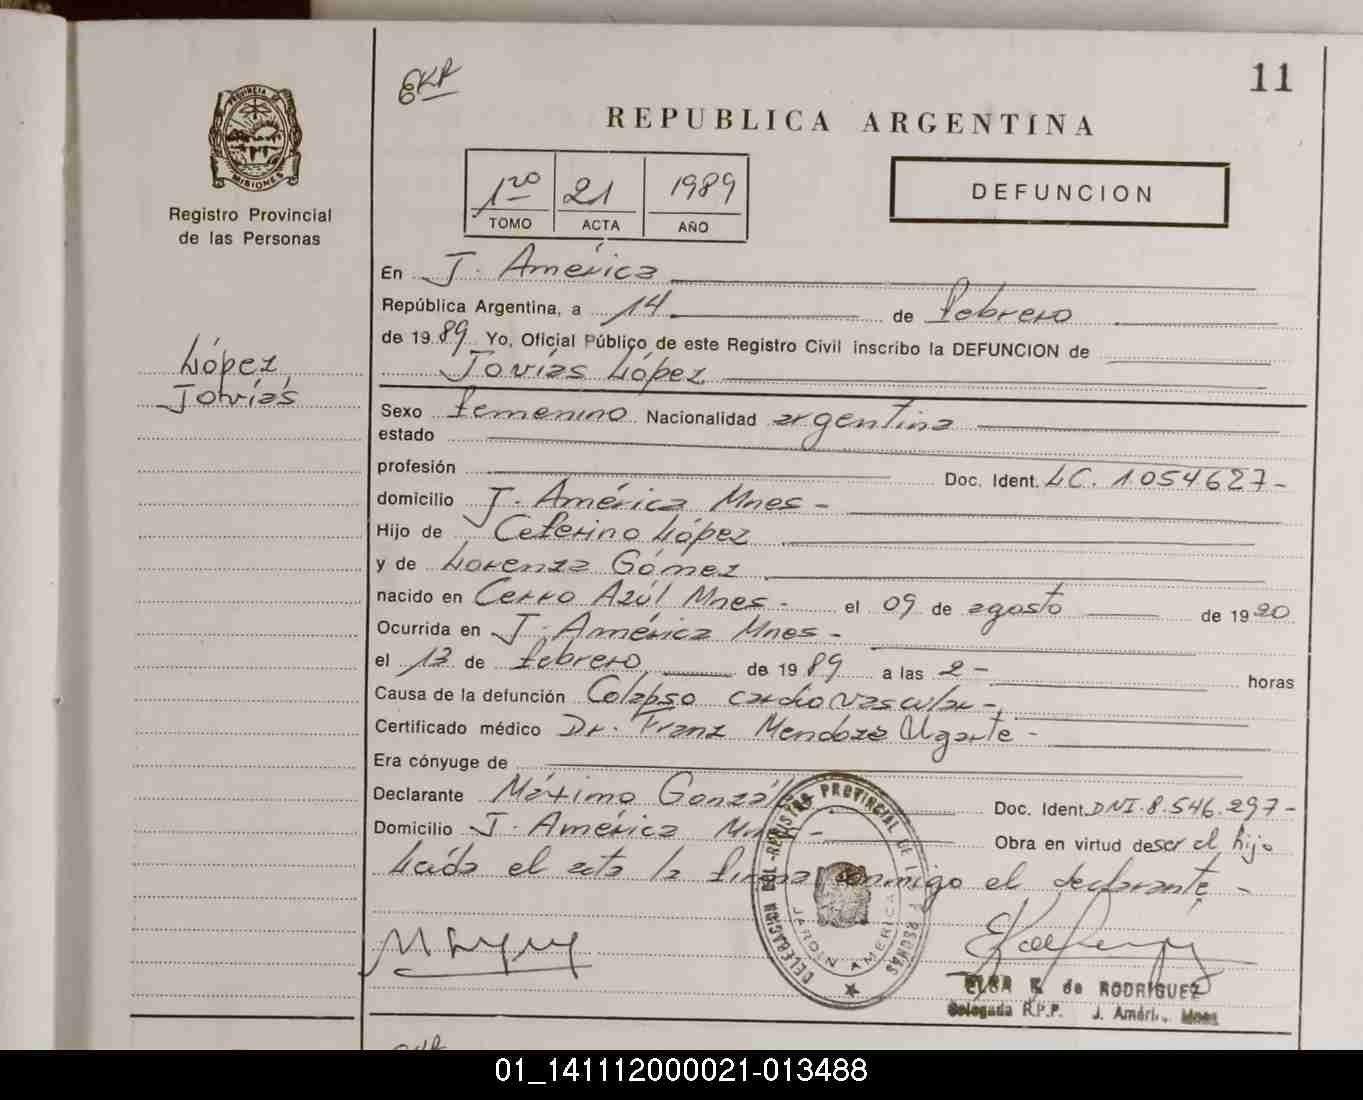 EKR
11
REPUBLICA ARGENTINA
PROVINCIA DE MISIONES
Registro Provincial
de las Personas
1ro 21 1989
TOMO ACTA AÑO
DEFUNCION
En J. América
República Argentina, a 14 de febrero
de 1989 Yo, Oficial Público de este Registro Civil inscribo la DEFUNCION de
Jovías López
López
Jovías
Sexo femenino Nacionalidad argentina
estado
profesión Doc. Ident. LC. 1.054627-
domicilio J. América Mnes -
Hijo de Ceferino López
y de Lorenza Gómez
nacido en Cerro Azúl Mnes - el 09 de agosto de 1920
Ocurrida en J. América Mnes -
el 13 de febrero de 1989 a las 2 - horas
Causa de la defunción Colapso cardiovascular -
Certificado médico Dr. Franz Mendoza Ugarte -
Era cónyuge de
Declarante Máximo Gonzál Doc. Ident. DNI. 8.546.297-
Domicilio J. América Mnes - Obra en virtud de ser el hijo
Leída el acta la firma conmigo el declarante -
DELEGACION DEL REGISTRO PROVINCIAL DE LAS PERSONAS
JARDIN AMERICA
ELSA K. de RODRIGUEZ
Delegada R.P.P. J. Améri., Mnes
01_141112000021-013488